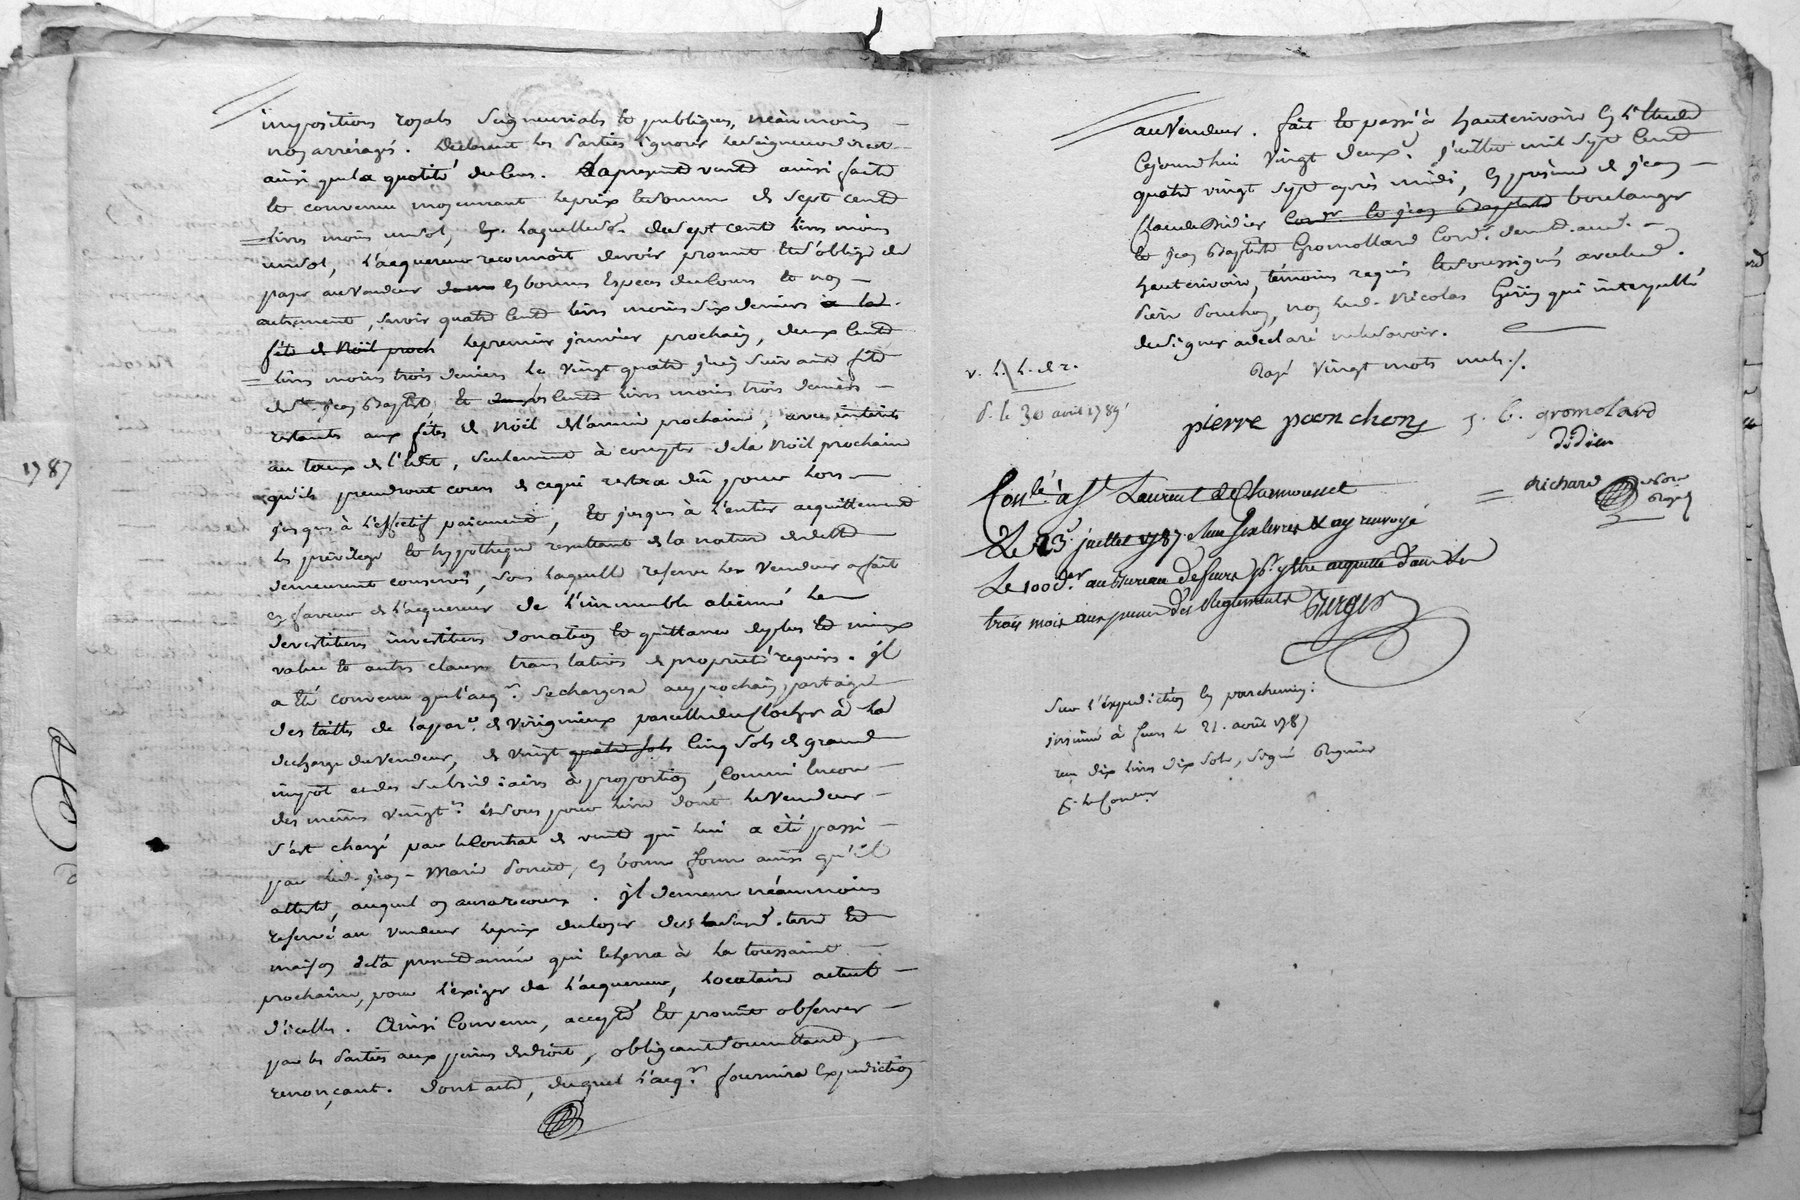 impositions royals Seigneurials et publiques, néanmoins
non arréragés. Déclarant les Parties ignorer le Seigneur direct
ainsi que la quotité du Cens. La présente vente ainsi faite
et convenue moyennant le prix et somme de sept cents
livres moins un sol, laquelle de sept cents livres moins
un sol, l'acquereur reconnoît devoir promet et s'oblige de
payer au Vendeur en bonnes Especes du Cours et non
autrement, Savoir quatre Cents livres moins six deniers a la
fête de Noël proch le premier janvier prochain, deux Cents
livres moins trois deniers le vingt quatre juin suivant fête
de St. jean Baptiste, et les Cents livres moins trois deniers
restants aux fêtes de Noël de l'année prochaine, avec interêts
au taux de l'Edit, Seulement à compter de la Noël prochaine
qu'ils prendront cours de ce qui restera dû pour lors
jusques à l'effectif paiement, Et jusques à l'entier acquittement
les privilege et hypotheque resultant de la nature de dette
demeurent conservés, Sous laquelle reserve le Vendeur a fait
en faveur de l'acquereur de l'immeuble aliéné les
devestitures investitures donation et quittance de plus et mieux
value et autres clauses translatives de propriété requises. Il
a été convenu que l'acqr. Se chargera au prochain partage
des tailles de la parse. de Virignieux parcelle du Clocher à la
décharge du Vendeur, de vingt quatre sols Cinq Sols de grand
impôt et des subsidiaires à proportion, Comme Encore
des mêmes vingt. dont le Vendeur
s'est chargé par le Contrat de vente qui lui a été passé
par led. jean-Marie en bonne forme ainsi qu'il
atteste, auquel on aura recours. Il demeure néanmoins
reservé au Vendeur le prix du loyer des terre et
maison de la presente année qui Echerra à la toussaint
prochaine, pour l'exiger de l'acquereur, locataire actuel
d'icelles. Ainsi Convenu, accepté et promit observer
par les Parties aux peines de droit, obligeant Soumettant,
renonçant. Dont acte, duquel l'acqr. fournira Expedition
1787
au Vendeur. fait et passé à hauterivoire En l'Etude
Cejourd'hui Vingt deux. juillet mil Sept Cent
quatre vingt Sept après midi, En présence de jean
Claude Didier Cordr. et jean Baptiste boulanger
et jean Baptiste Gromollard Cord. dem. aud.
hauterivoire, témoins requis et soussignés avec led.
Pierre Ponchon, non led. Nicolas qui interpellé
de signer a declaré ne le Savoir.
Rayé vingt mots nuls./.
pierre ponchon j. b. gromolard
didier
Richard
d. le 30 avril 1789
Conlé. à St Laurent de Chamousset
Le 23. juillet 1787. Reçu six livres & ay renvoyé
Le 100 der au Bureau de feurs pr. y Etre acquitté dans les
trois mois aux peines des Reglements
Sur l'éxpedition En parchemin:
insinué à feurs le 21. août 1787
reçu dix livres dix sols, signé